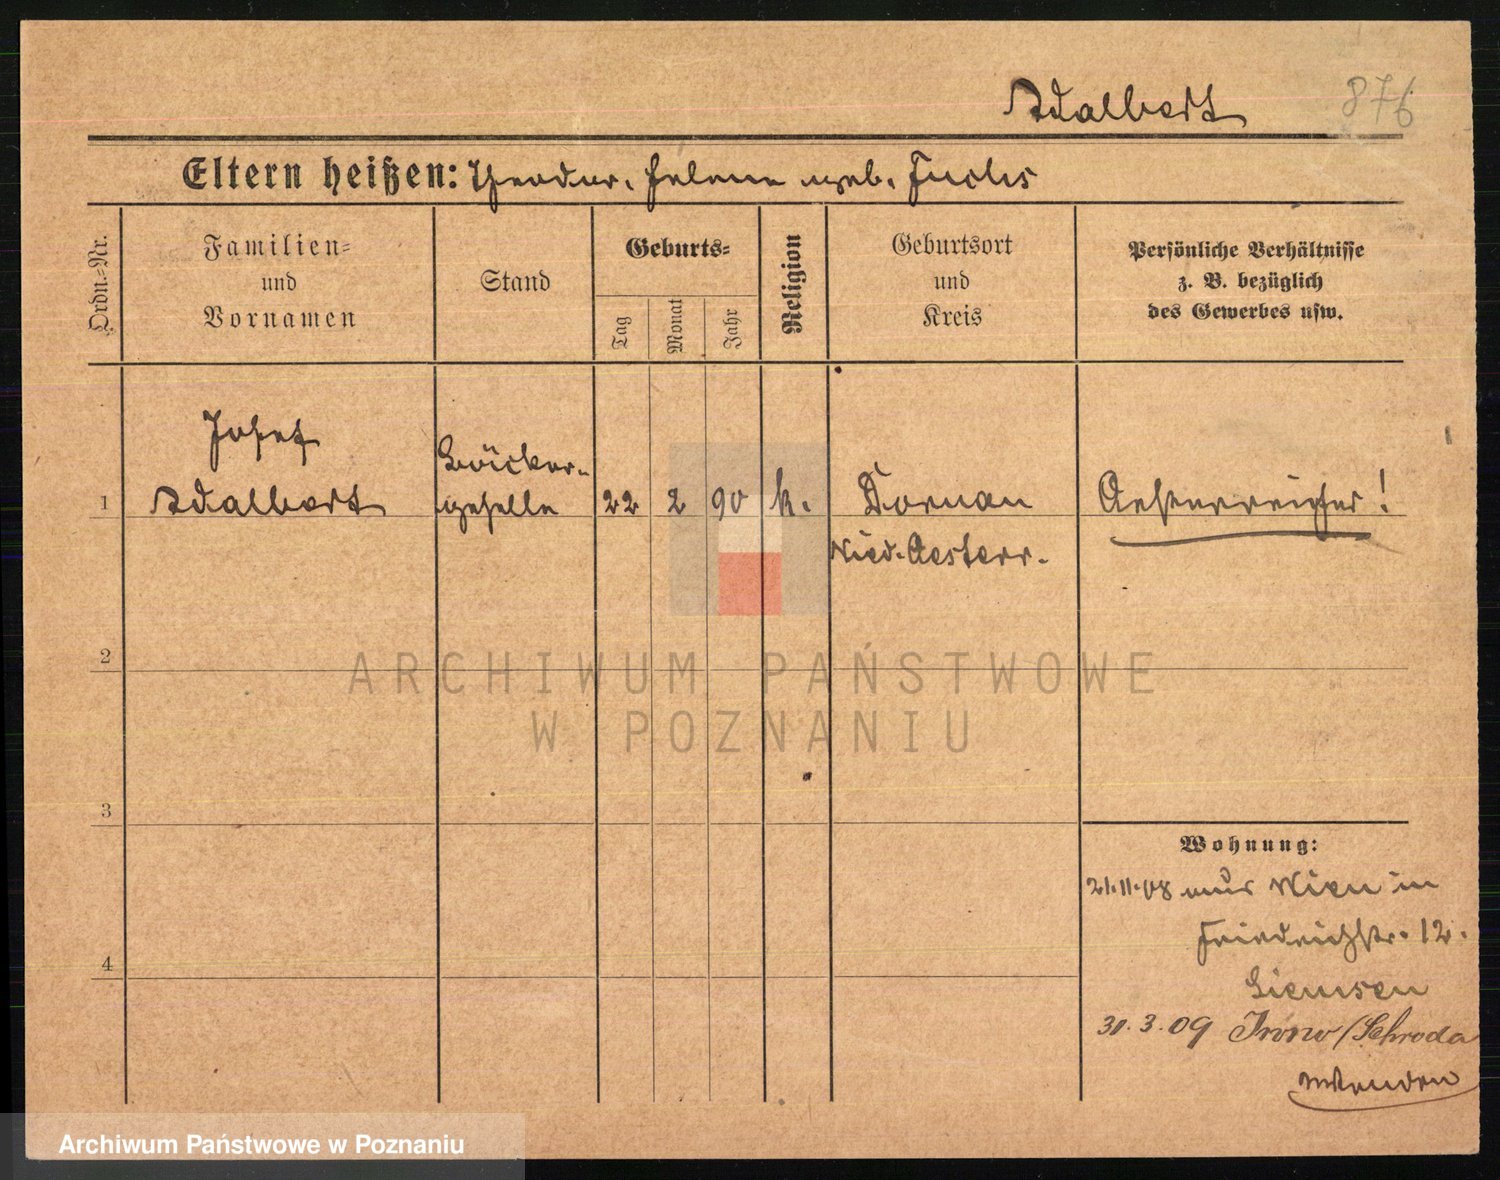 Adalbert
876
Eltern heißen: Theodor, Helene geb. Fuchs
Ordn.-Nr.
Familien-
und
Vornamen
Stand
Geburts-
Tag
Monat
Jahr
Religion
Geburtsort
und
Kreis
Persönliche Verhältnisse
z. B. bezüglich
des Gewerbes usw.
1
Josef
Adalbert
Bäcker-
geselle
22
2
90
k.
Dornau
Nied. Oesterr.
Oesterreicher!
2
3
4
Wohnung:
21.11.08 aus Wien in
Friedrichstr. 12.
Siemsen
31.3.09 /Schroda
ARCHIWUM PAŃSTWOWE
W POZNANIU
Archiwum Państwowe w Poznaniu